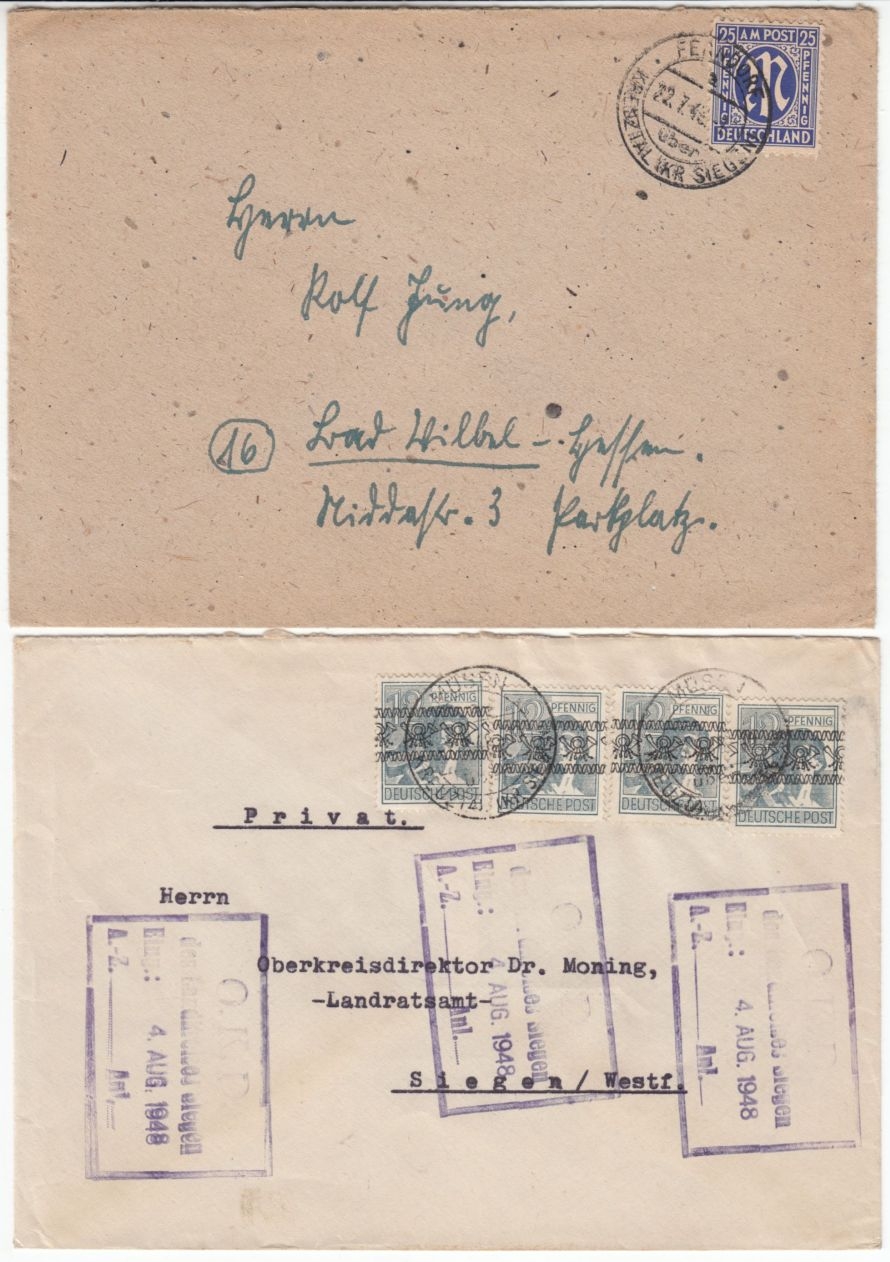 25 AM POST 25
PFENNIG PFENNIG
DEUTSCHLAND
FERNDORF
22.7.46
über
KREUZTAL (KR SIEGEN)
Herrn
Rolf Jung,
16 Bad Vilbel - Hessen.
Niddastr. 3 Parkplatz.
12 PFENNIG 12 PFENNIG 12 PFENNIG 12 PFENNIG
DEUTSCHE POST DEUTSCHE POST DEUTSCHE POST DEUTSCHE POST
MÜSEN
MÜSEN
Privat.
Herrn
Oberkreisdirektor Dr. Moning,
-Landratsamt-
Siegen/Westf.
O.K.D.
des Landkreises Siegen
Eing.: 4. AUG. 1948
A.-Z. Anl.
O.K.D.
des Landkreises Siegen
Eing.: 4. AUG. 1948
A.-Z. Anl.
O.K.D.
des Landkreises Siegen
Eing.: 4. AUG. 1948
A.-Z. Anl.